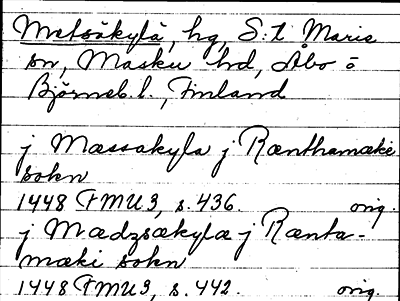 Metsäkylä, hg, S:t Marie
sn, Masku hd, Åbo o
Björneb. l., Finland
j Mæssakyla j Rænthamæke
sokn
1448 FMU 3, s. 436. orig.
j Mædzsækylæ j Rænta-
mæki sokn
1448 FMU 3, s. 442. orig.